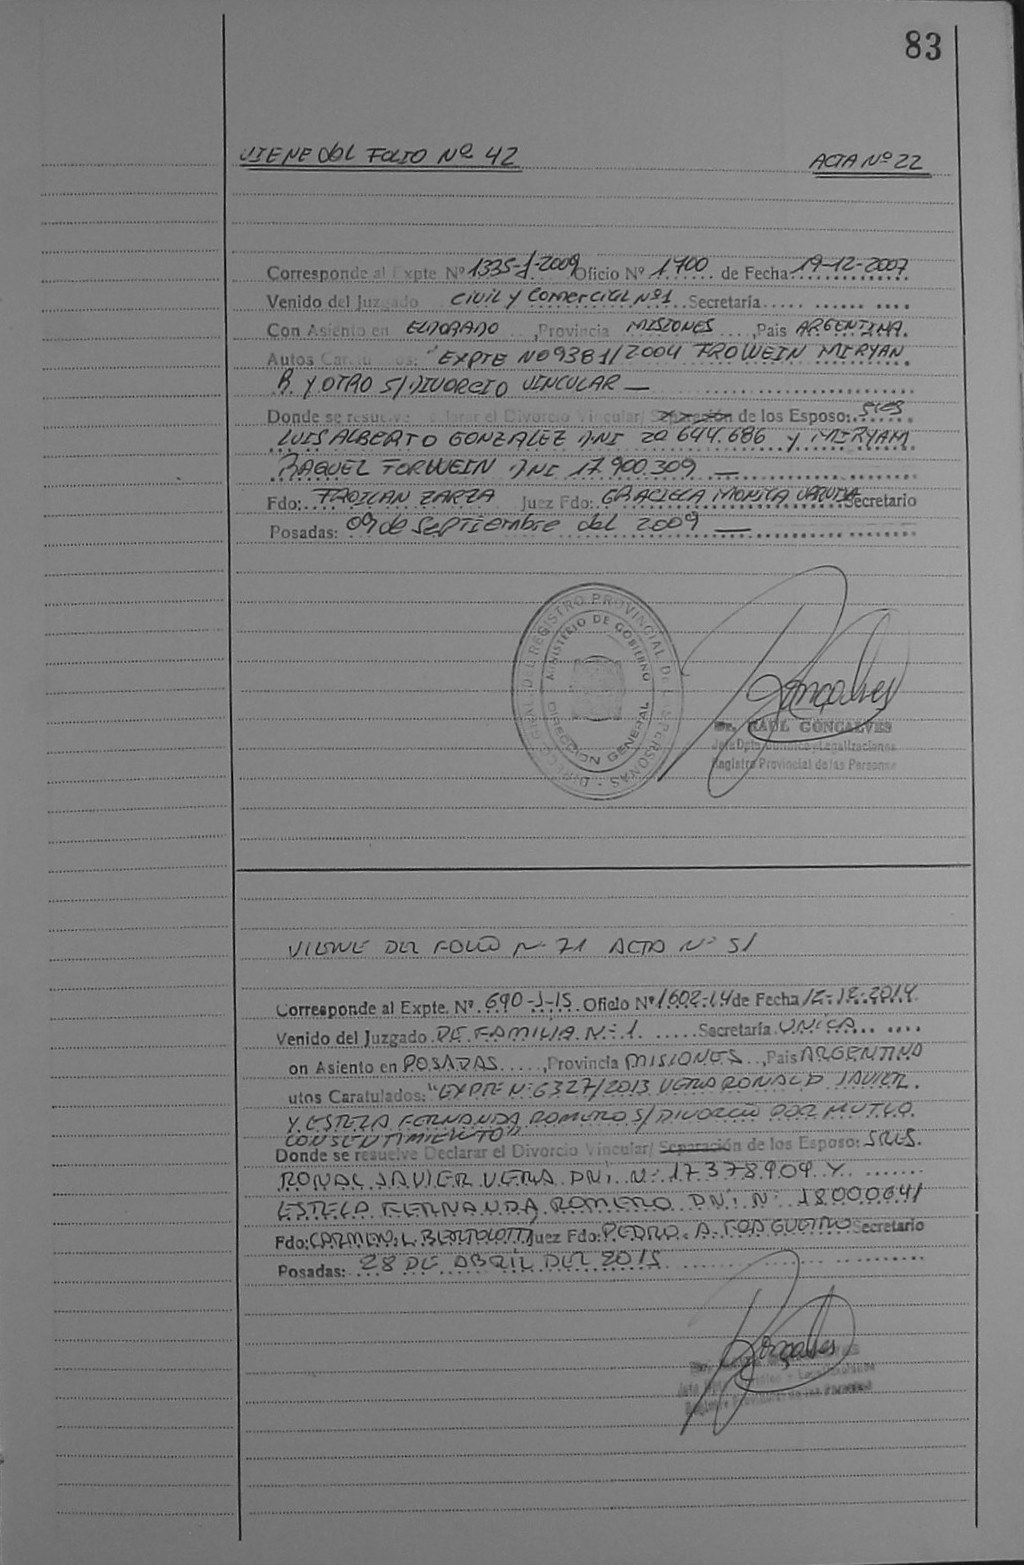 83
VIENE del FOLIO Nº 42 ACTA Nº 22
Corresponde al Expte Nº 1335-J-2009 Oficio Nº 1.700 de Fecha 19-12-2007
Venido del Juzgado Civil y Comercial Nº1 Secretaría
Con Asiento en ELDORADO, Provincia MISIONES, País ARGENTINA.
Autos Caratulados: "EXPTE Nº 9381/2004 FROWEIN MIRYAN
R. Y OTRO S/DIVORCIO VINCULAR —
Donde se resuelve Declarar el Divorcio Vincular/ Separación de los Esposo: sres
LUIS ALBERTO GONZALEZ DNI 20 644.686 y MIRYAM
RAQUEL FORWEIN DNI 17.900.309 —
Fdo: FROILAN ZARZA Juez Fdo: GRACIELA MONICA Secretario
Posadas: 09 de Septiembre del 2009 —
DIRECC. GRAL. DEL REGISTRO PROVINCIAL DE LAS PERSONAS
MINISTERIO DE GOBIERNO
DIRECCION GENERAL
Gonçalves
Dr. RAUL GONCALVES
Jefe Dpto. Jurídico y Legalizaciones
Registro Provincial de las Personas
VIENE DEL FOLIO Nº 71 ACTA Nº 51
Corresponde al Expte. Nº 690-J-15 Oficio Nº 1602-14 de Fecha 12-12-2014
Venido del Juzgado DE FAMILIA Nº 1 Secretaría UNICA
on Asiento en POSADAS, Provincia MISIONES, País ARGENTINA
utos Caratulados: "EXPTE Nº 6327/2013 VERA RONALD JAVIER
Y ESTELA FERNANDA ROMERO S/DIVORCIO POR MUTUO
CONSENTIMIENTO"
Donde se resuelve Declarar el Divorcio Vincular/ Separación de los Esposo: SRES.
RONAL JAVIER VERA DNI Nº 17378.909 Y
ESTELA FERNANDA ROMERO DNI Nº 18000641
Fdo: CARMEN L. BERTOLOTTI Juez Fdo: PEDRO A. Secretario
Posadas: 28 DE ABRIL DEL 2015
Gonçalves
Registro Provincial de las Personas